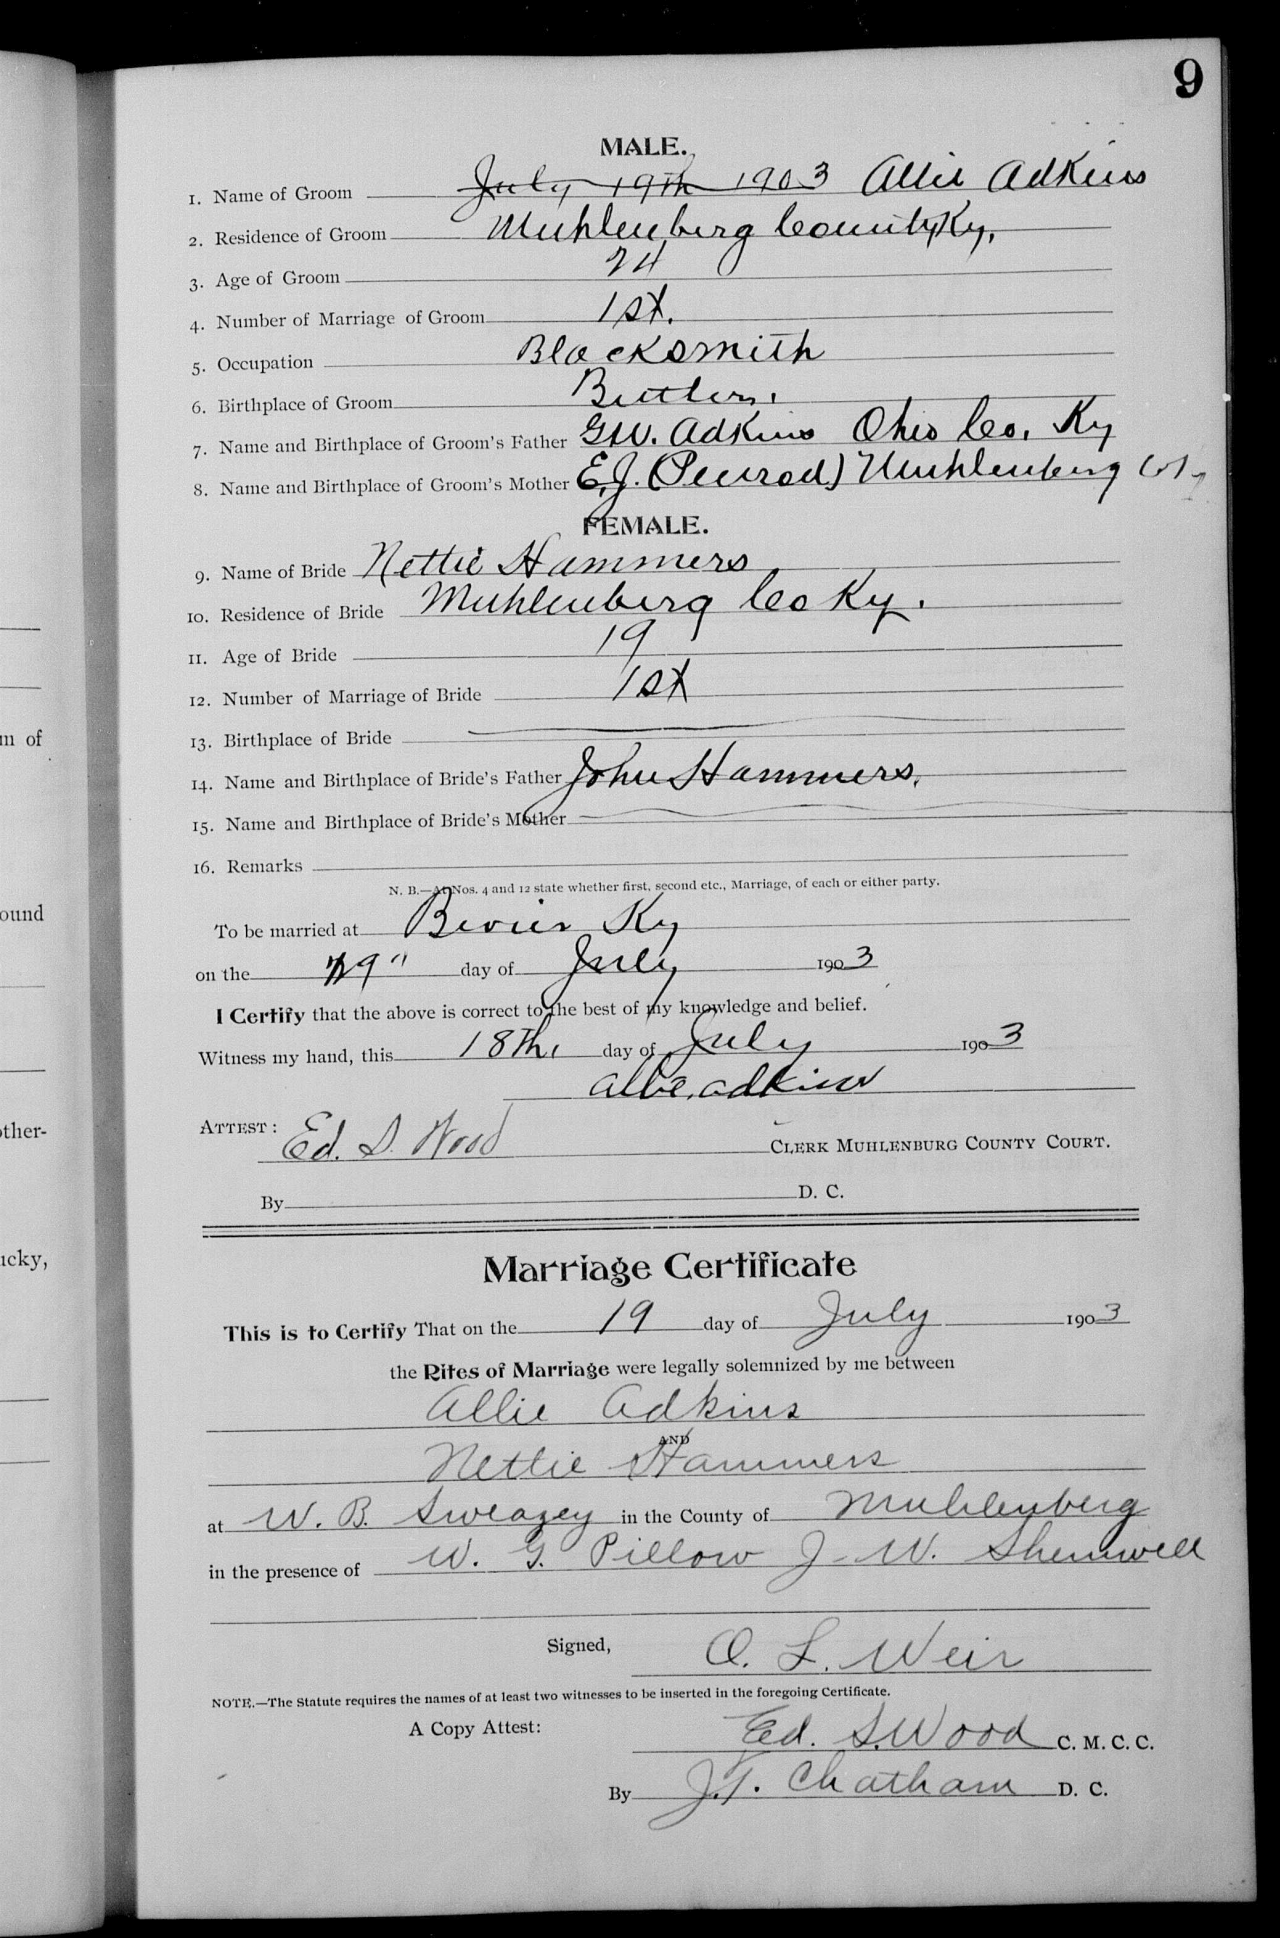 9
MALE.
1. Name of Groom July 19th 1903 Allie Adkins
2. Residence of Groom Muhlenberg County Ky,
3. Age of Groom 24
4. Number of Marriage of Groom 1st.
5. Occupation Blacksmith
6. Birthplace of Groom Butler.
7. Name and Birthplace of Groom's Father G.W. Adkins Ohio Co. Ky
8. Name and Birthplace of Groom's Mother E.J. (Penrod) Muhlenberg Co
FEMALE.
9. Name of Bride Nettie Hammers
10. Residence of Bride Muhlenberg Co Ky.
11. Age of Bride 19
12. Number of Marriage of Bride 1st
13. Birthplace of Bride
14. Name and Birthplace of Bride's Father John Hammers.
15. Name and Birthplace of Bride's Mother
16. Remarks
N. B.—At Nos. 4 and 12 state whether first, second etc., Marriage, of each or either party.
To be married at Bevier Ky
on the 19" day of July 1903
I Certify that the above is correct to the best of my knowledge and belief.
Witness my hand, this 18th, day of July 1903
Allie Adkins
ATTEST: Ed. S. Wood CLERK MUHLENBURG COUNTY COURT.
By D. C.
Marriage Certificate
This is to Certify That on the 19 day of July 1903
the Rites of Marriage were legally solemnized by me between
Allie Adkins
AND
Nettie Hammers
at W. B. Sweazey in the County of Muhlenberg
in the presence of W. G. Pillow J. W. Shemwell
Signed, O. L. Weir
NOTE.—The Statute requires the names of at least two witnesses to be inserted in the foregoing Certificate.
A Copy Attest: Ed. S. Wood C. M. C. C.
By J.T. Chatham D. C.
m of
ound
other-
ucky,